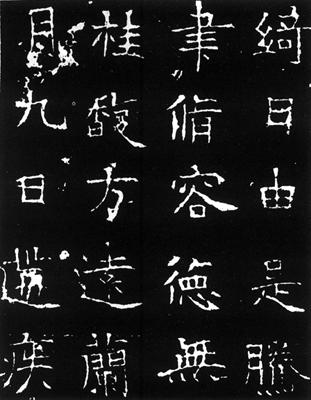 綺日由是騰
聿脩容德無
桂馥方遠蘭
月九日遘疾